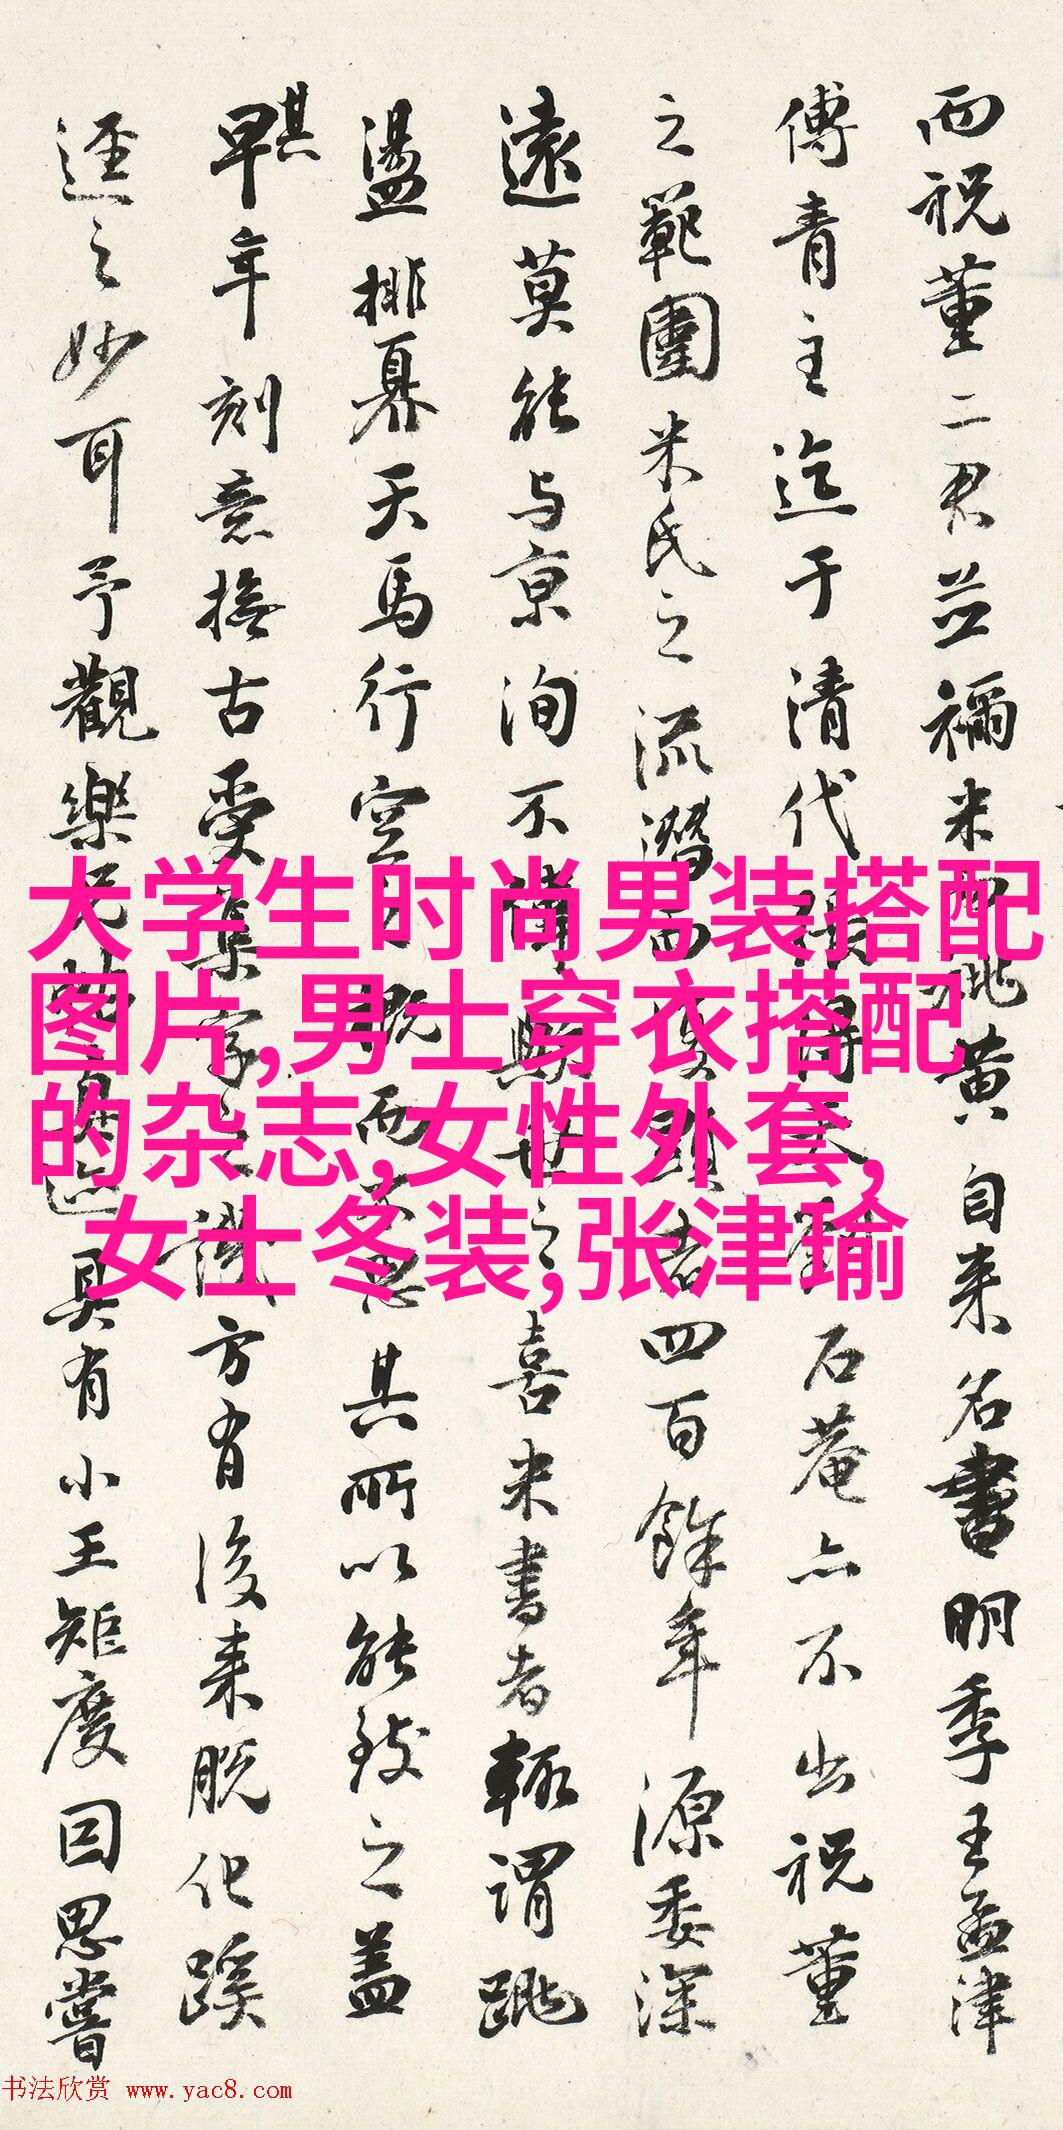 而祝董二君並禰米 黄自来名書明季王孟津
傅青主迄于清代 石菴亦不出祝董
之範圍米氏之流潛而 者四百餘年源委深
遠莫能与京洵不 世之喜米書者輒謂跳
盪排奡天馬行空 既而 思其所以能致之蓋
其早年刻意撫古受集字之譏方有後来脱化蹊
逕之妙耳予觀樂 具有小王矩度因思嘗
大学生时尚男装搭配
图片,男士穿衣搭配
的杂志,女性外套,
女士冬装,张津瑜
书法欣赏 www.yac8.com